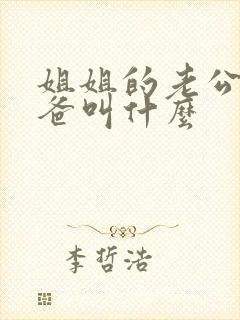 姐姐的老公
爸叫什麼
李哲浩